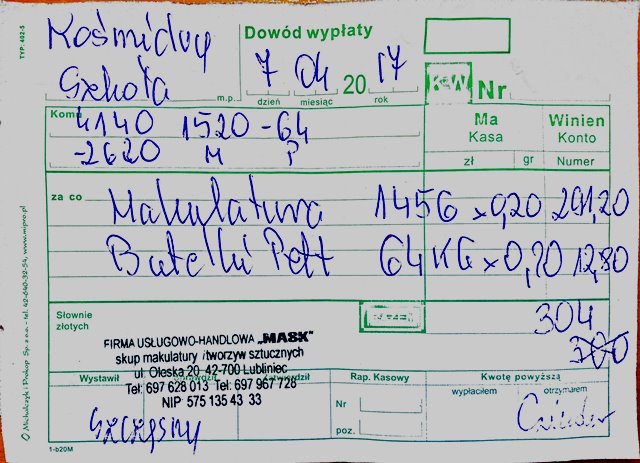 TYP: 402-5
Kośmidry
Szkoła
m.p.
Dowód wypłaty
7 04 20 17
dzień miesiąc rok
K&W Nr
Komu
4140 1520 -64
-2620 M P
Ma Winien
Kasa Konto
zł gr Numer
za co Makulatura 1456 x 0,20 291,20
Butelki Pett 64 KG x 0,20 12,80
Słownie
złotych
304
300
FIRMA USŁUGOWO-HANDLOWA „MASK"
skup makulatury i tworzyw sztucznych
ul. Oleska 20 42-700 Lubliniec
Tel: 697 628 013 Tel: 697 967 728
NIP: 575 135 43 33
Wystawił
Szczęsny
Rap. Kasowy
Nr
poz.
Kwotę powyższą
wypłaciłem otrzymałem
1-b20M
Michalczyk i Prokop Sp. z o.o. - tel. 42-640-32-54, www.mipro.pl